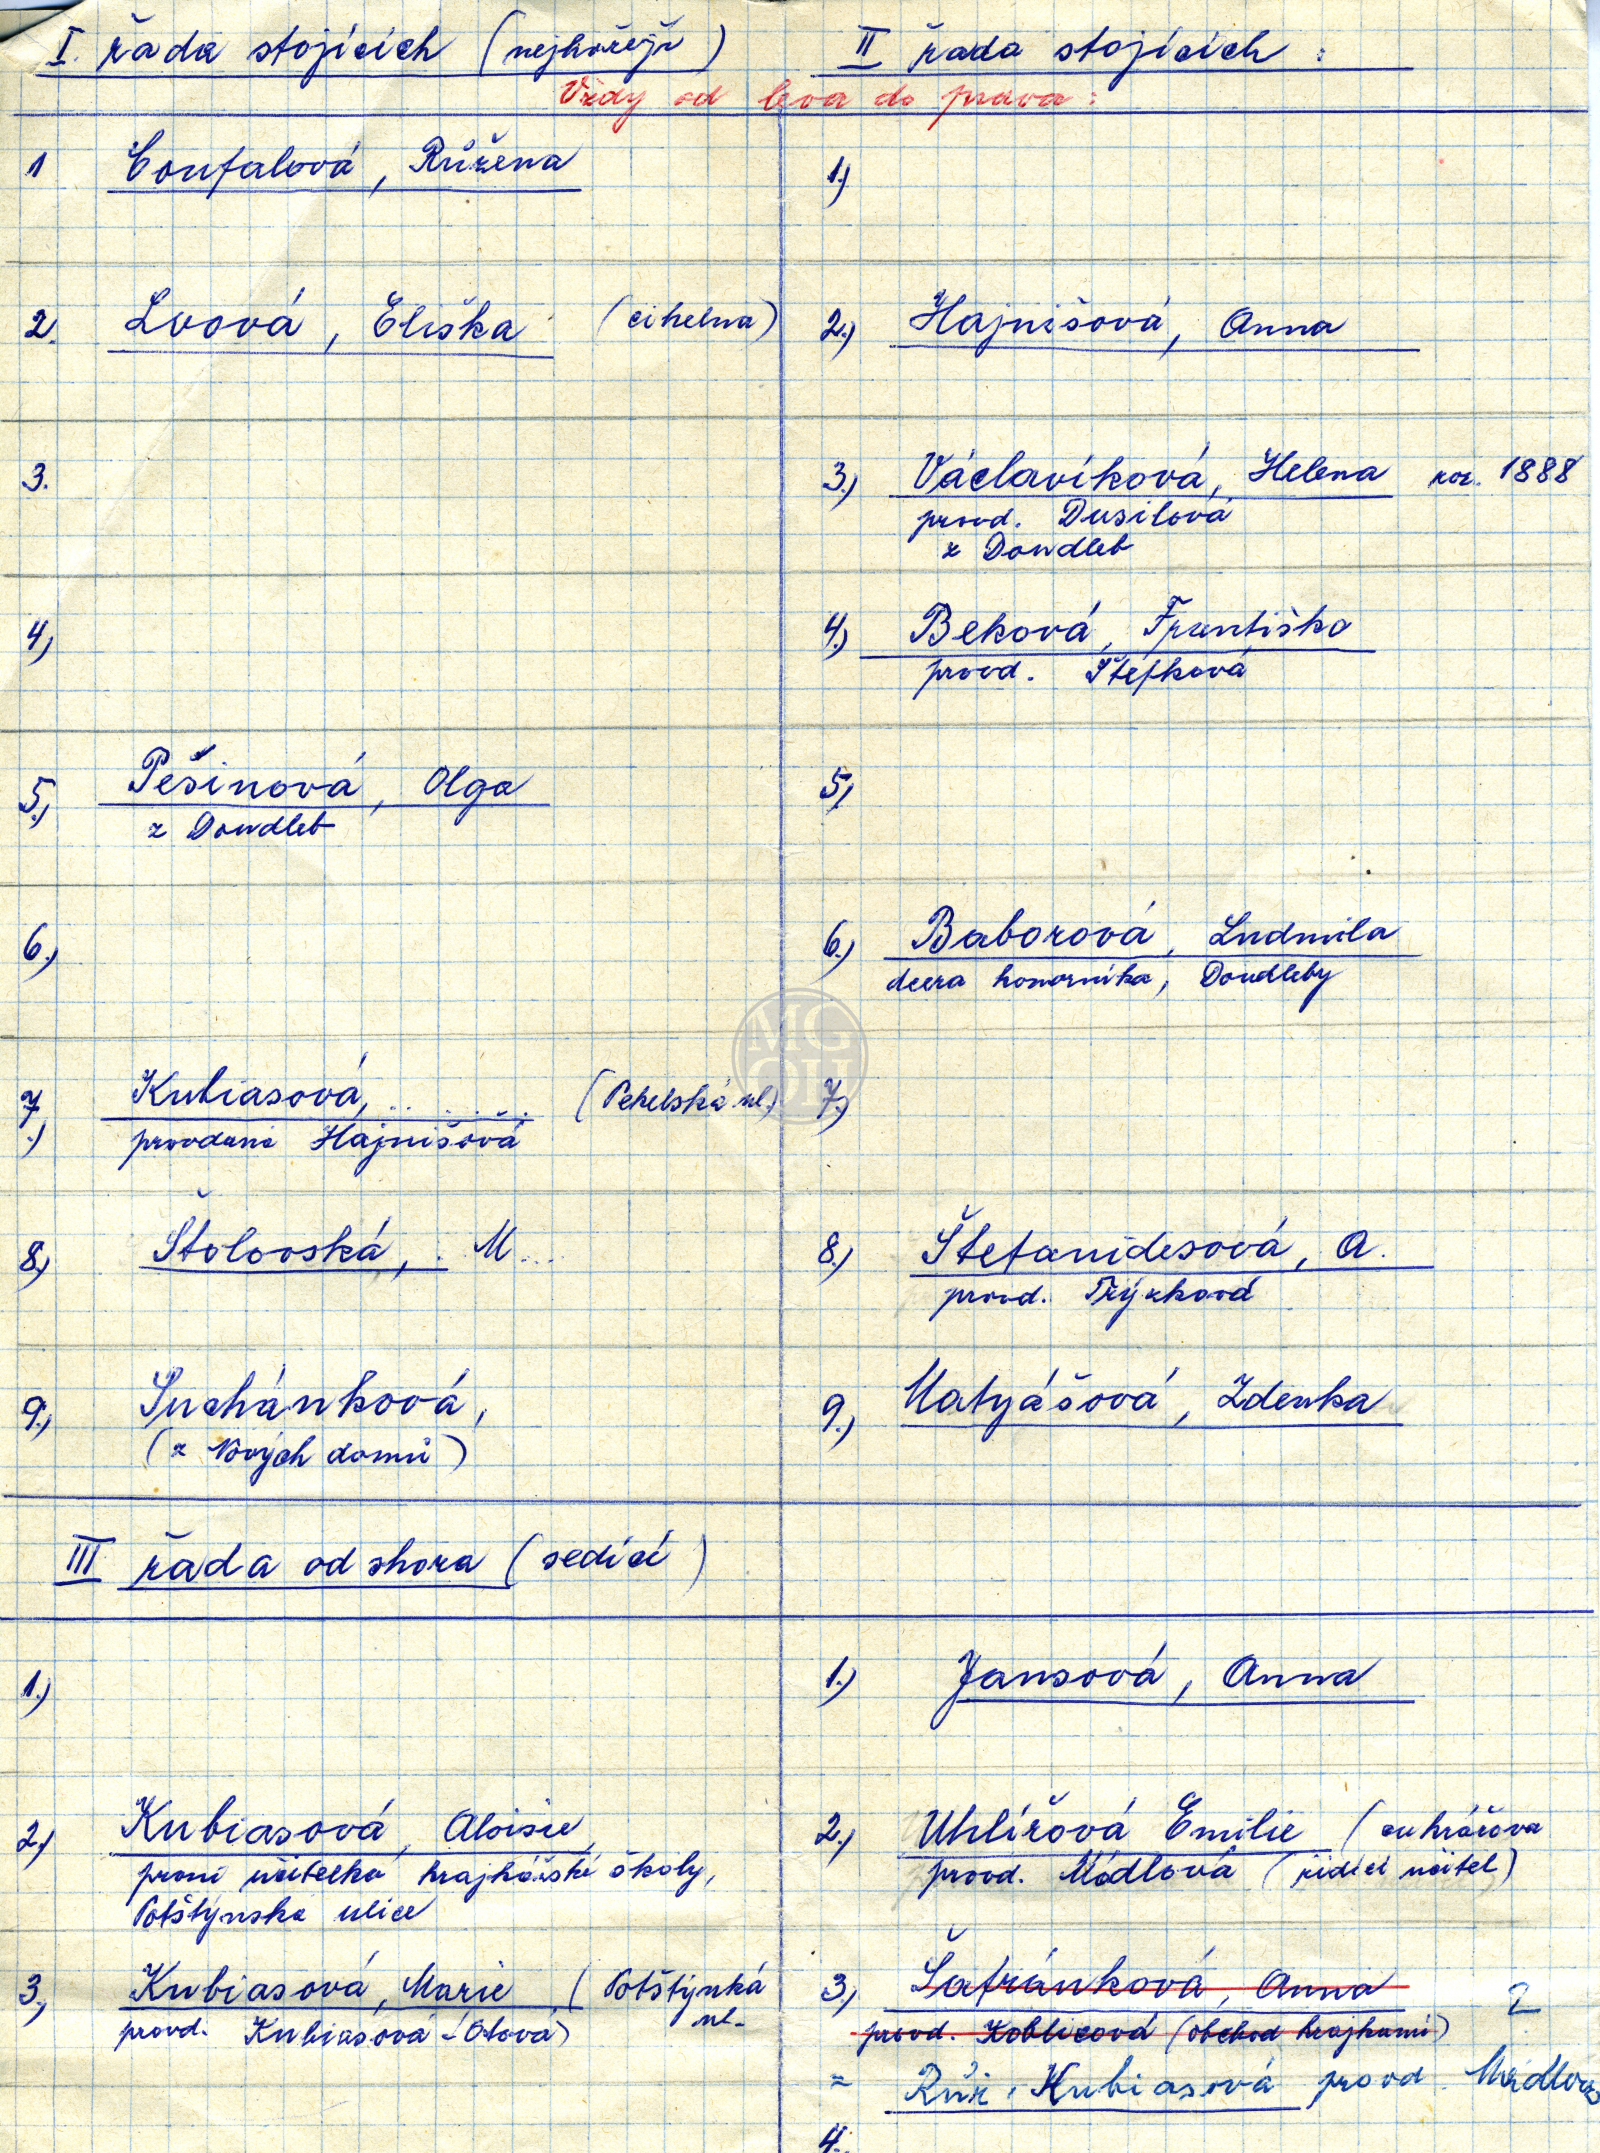 I. řada stojících (nejhořejší)
II řada stojících :
Vždy od leva do prava :
1 Coufalová, Růžena
1.)
2. Lvová, Eliška (cihelna)
2.) Hajnišová, Anna
3.
3.) Václavíková, Helena roz. 1888
provd. Dusilová
z Doudleb
4.)
4.) Beková, Františka
provd. Štefková
5.) Pešinová, Olga
z Doudleb
5.)
6.)
6.) Baborová, Ludmila
dcera komorníka, Doudleby
7.) Kubiasová, ........ (Pekelská ul.)
provdaná Hajnišová
7.)
8.) Štolovská, . M...
8.) Štefanidesová, A.
provd. Trýzková
9.) Suchánková,
(z Nových domů)
9.) Matyášová, Zdenka
III řada od shora (sedící)
1.)
1.) Jansová, Anna
2.) Kubiasová, Aloisie,
první učitelka krajkářské školy,
Potštýnská ulice
2.) Uhlířová Emilie (cukrářova
provd. Mádlová (řídící učitel)
3.) Kubiasová, Marie (Potštýnká
ul.
provd. Kubiasová - Otova)
3.) Šafránková, Anna ?
provd. Koblicová (obchod krajkami)
= Růž. Kubiasová provd.
4.